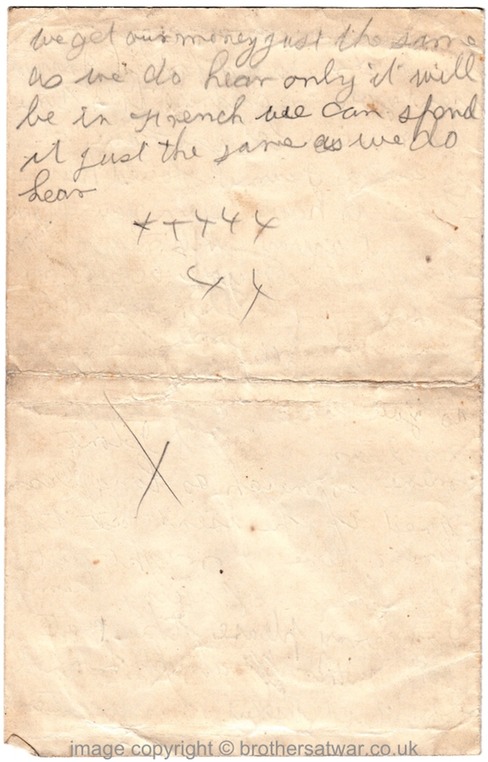 we get our money just the same
as we do hear only it will
be in french we can spend
it just the same as we do
hear
x x x x x
x x
X
image copyright © brothersatwar.co.uk